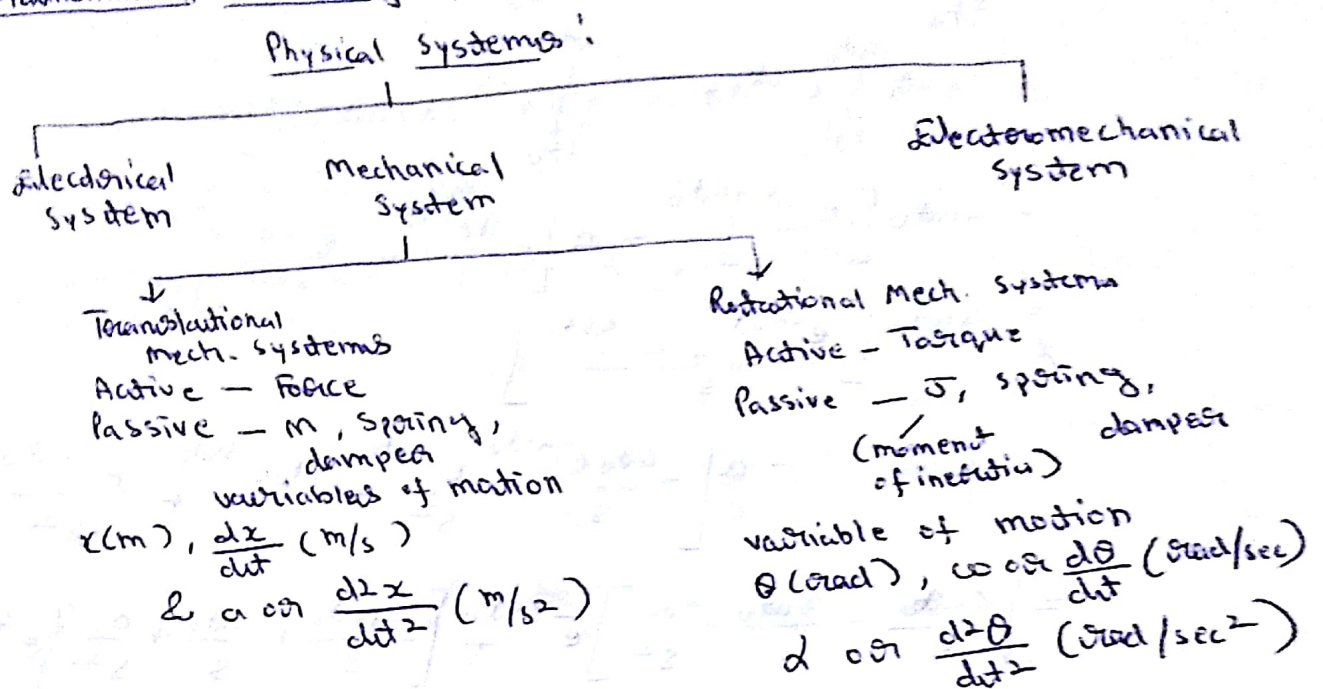 Physical Systems :
Electrical
System
Mechanical
System
Electromechanical
System
Translational
Mech. Systems
Active — Force
Passive — m, Spring,
damper
variables of motion
x(m), dx/dt (m/s)
& a or d2x/dt2 (m/s2)
Rotational Mech. Systems
Active — Torque
Passive — J, spring,
damper
(moment
of inertia)
variable of motion
θ(rad), ω or dθ/dt (rad/sec)
α or d2θ/dt2 (rad/sec2)